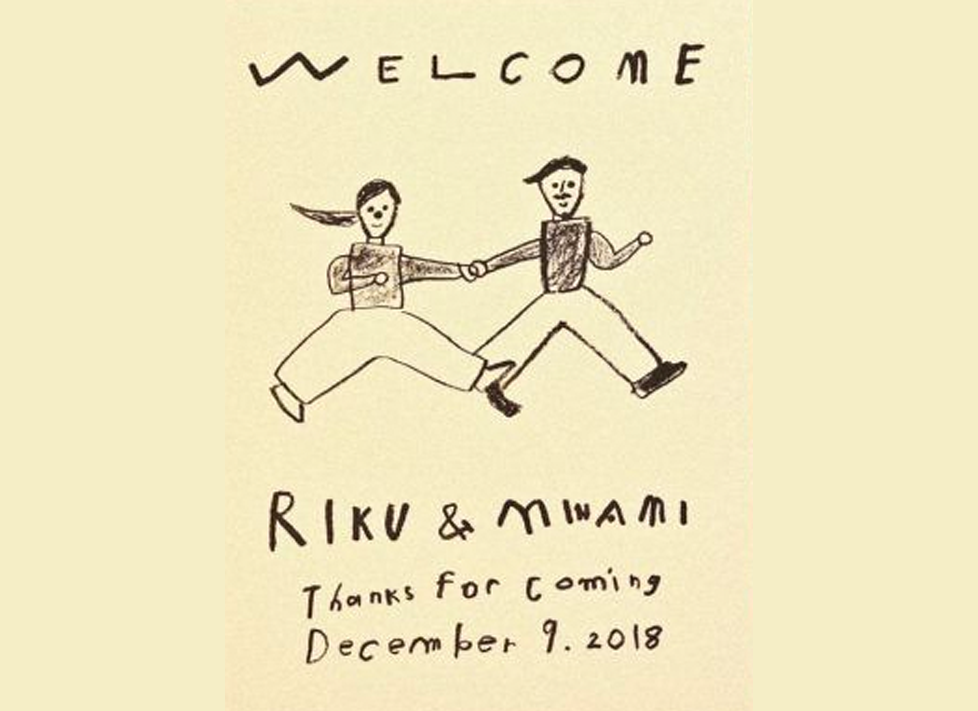 WELCOME
RIKU & MINAMI
Thanks for coming
December 9. 2018